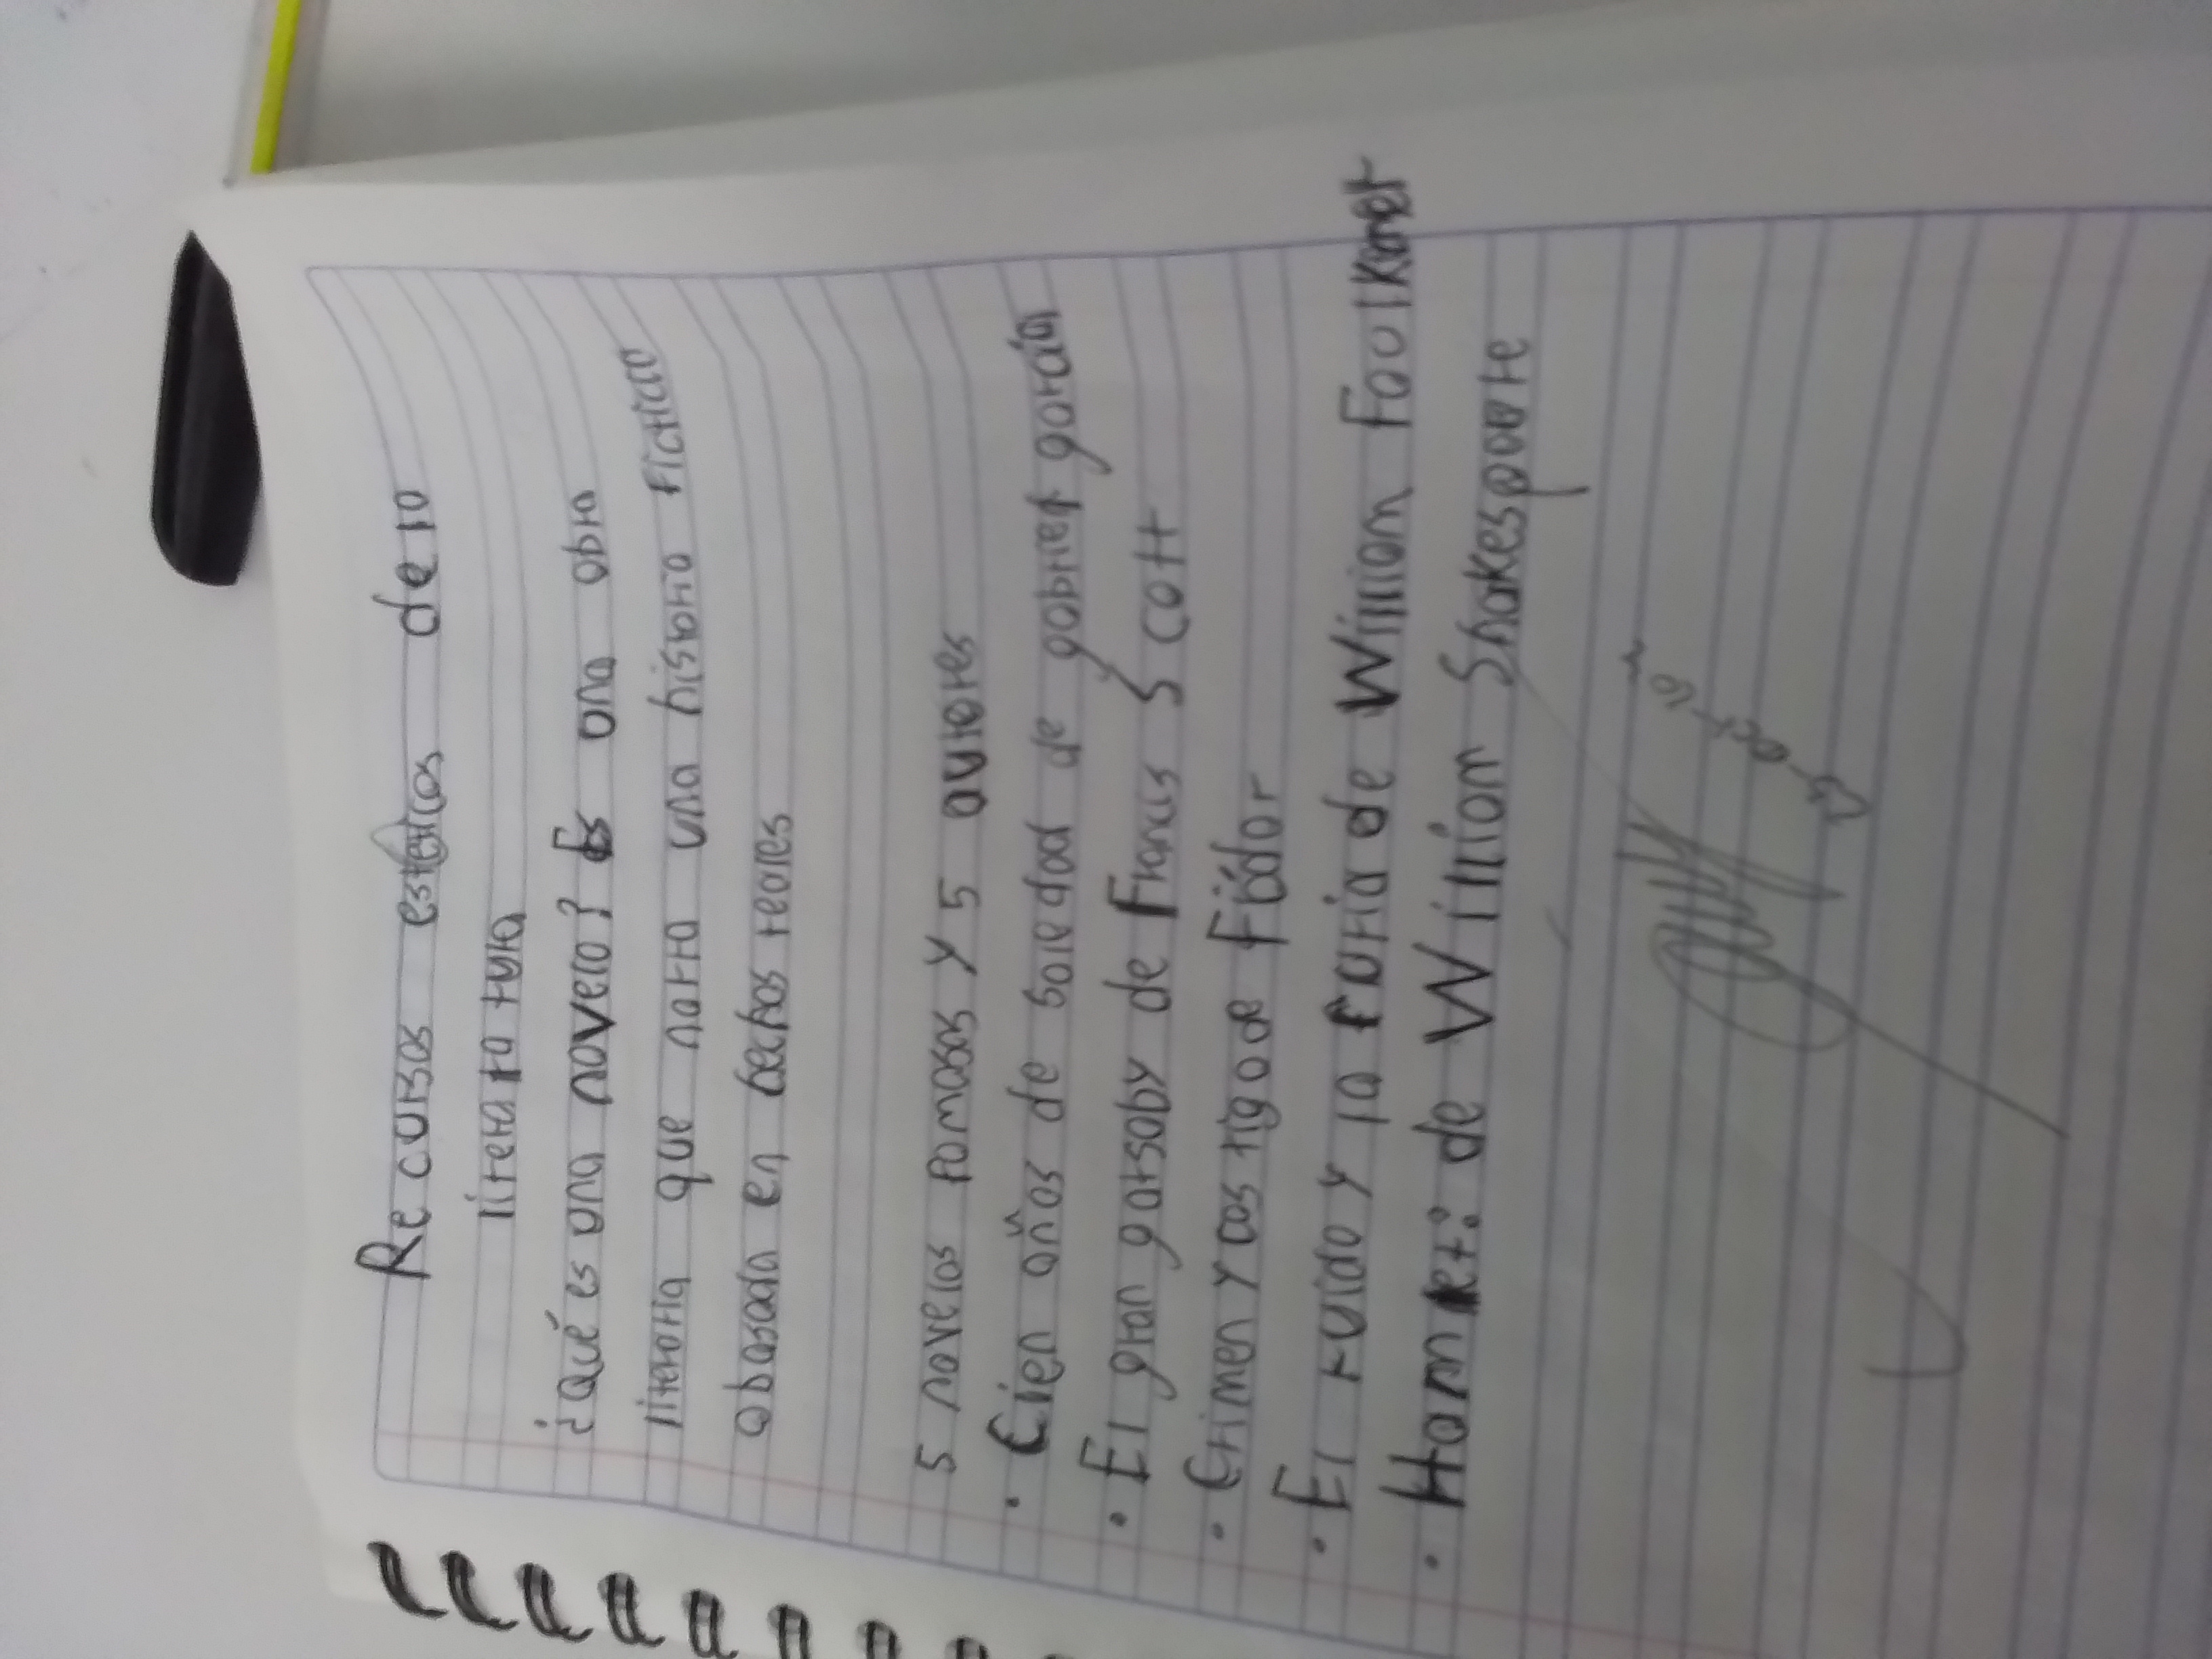 Recursos esteticos de la
literatura
¿Qué es una novela? Es una obra
literaria que narra una historia ficticia
o basada en hechos reales
5 novelas famosas y 5 autores
· Cien años de soledad de gabriel garcía
· El gran gatsby de Francis Scott
· Crimen y castigo de Fiódor
· El ruido y la furia de William Faulkner
· Hamlet: de William Shakespeare